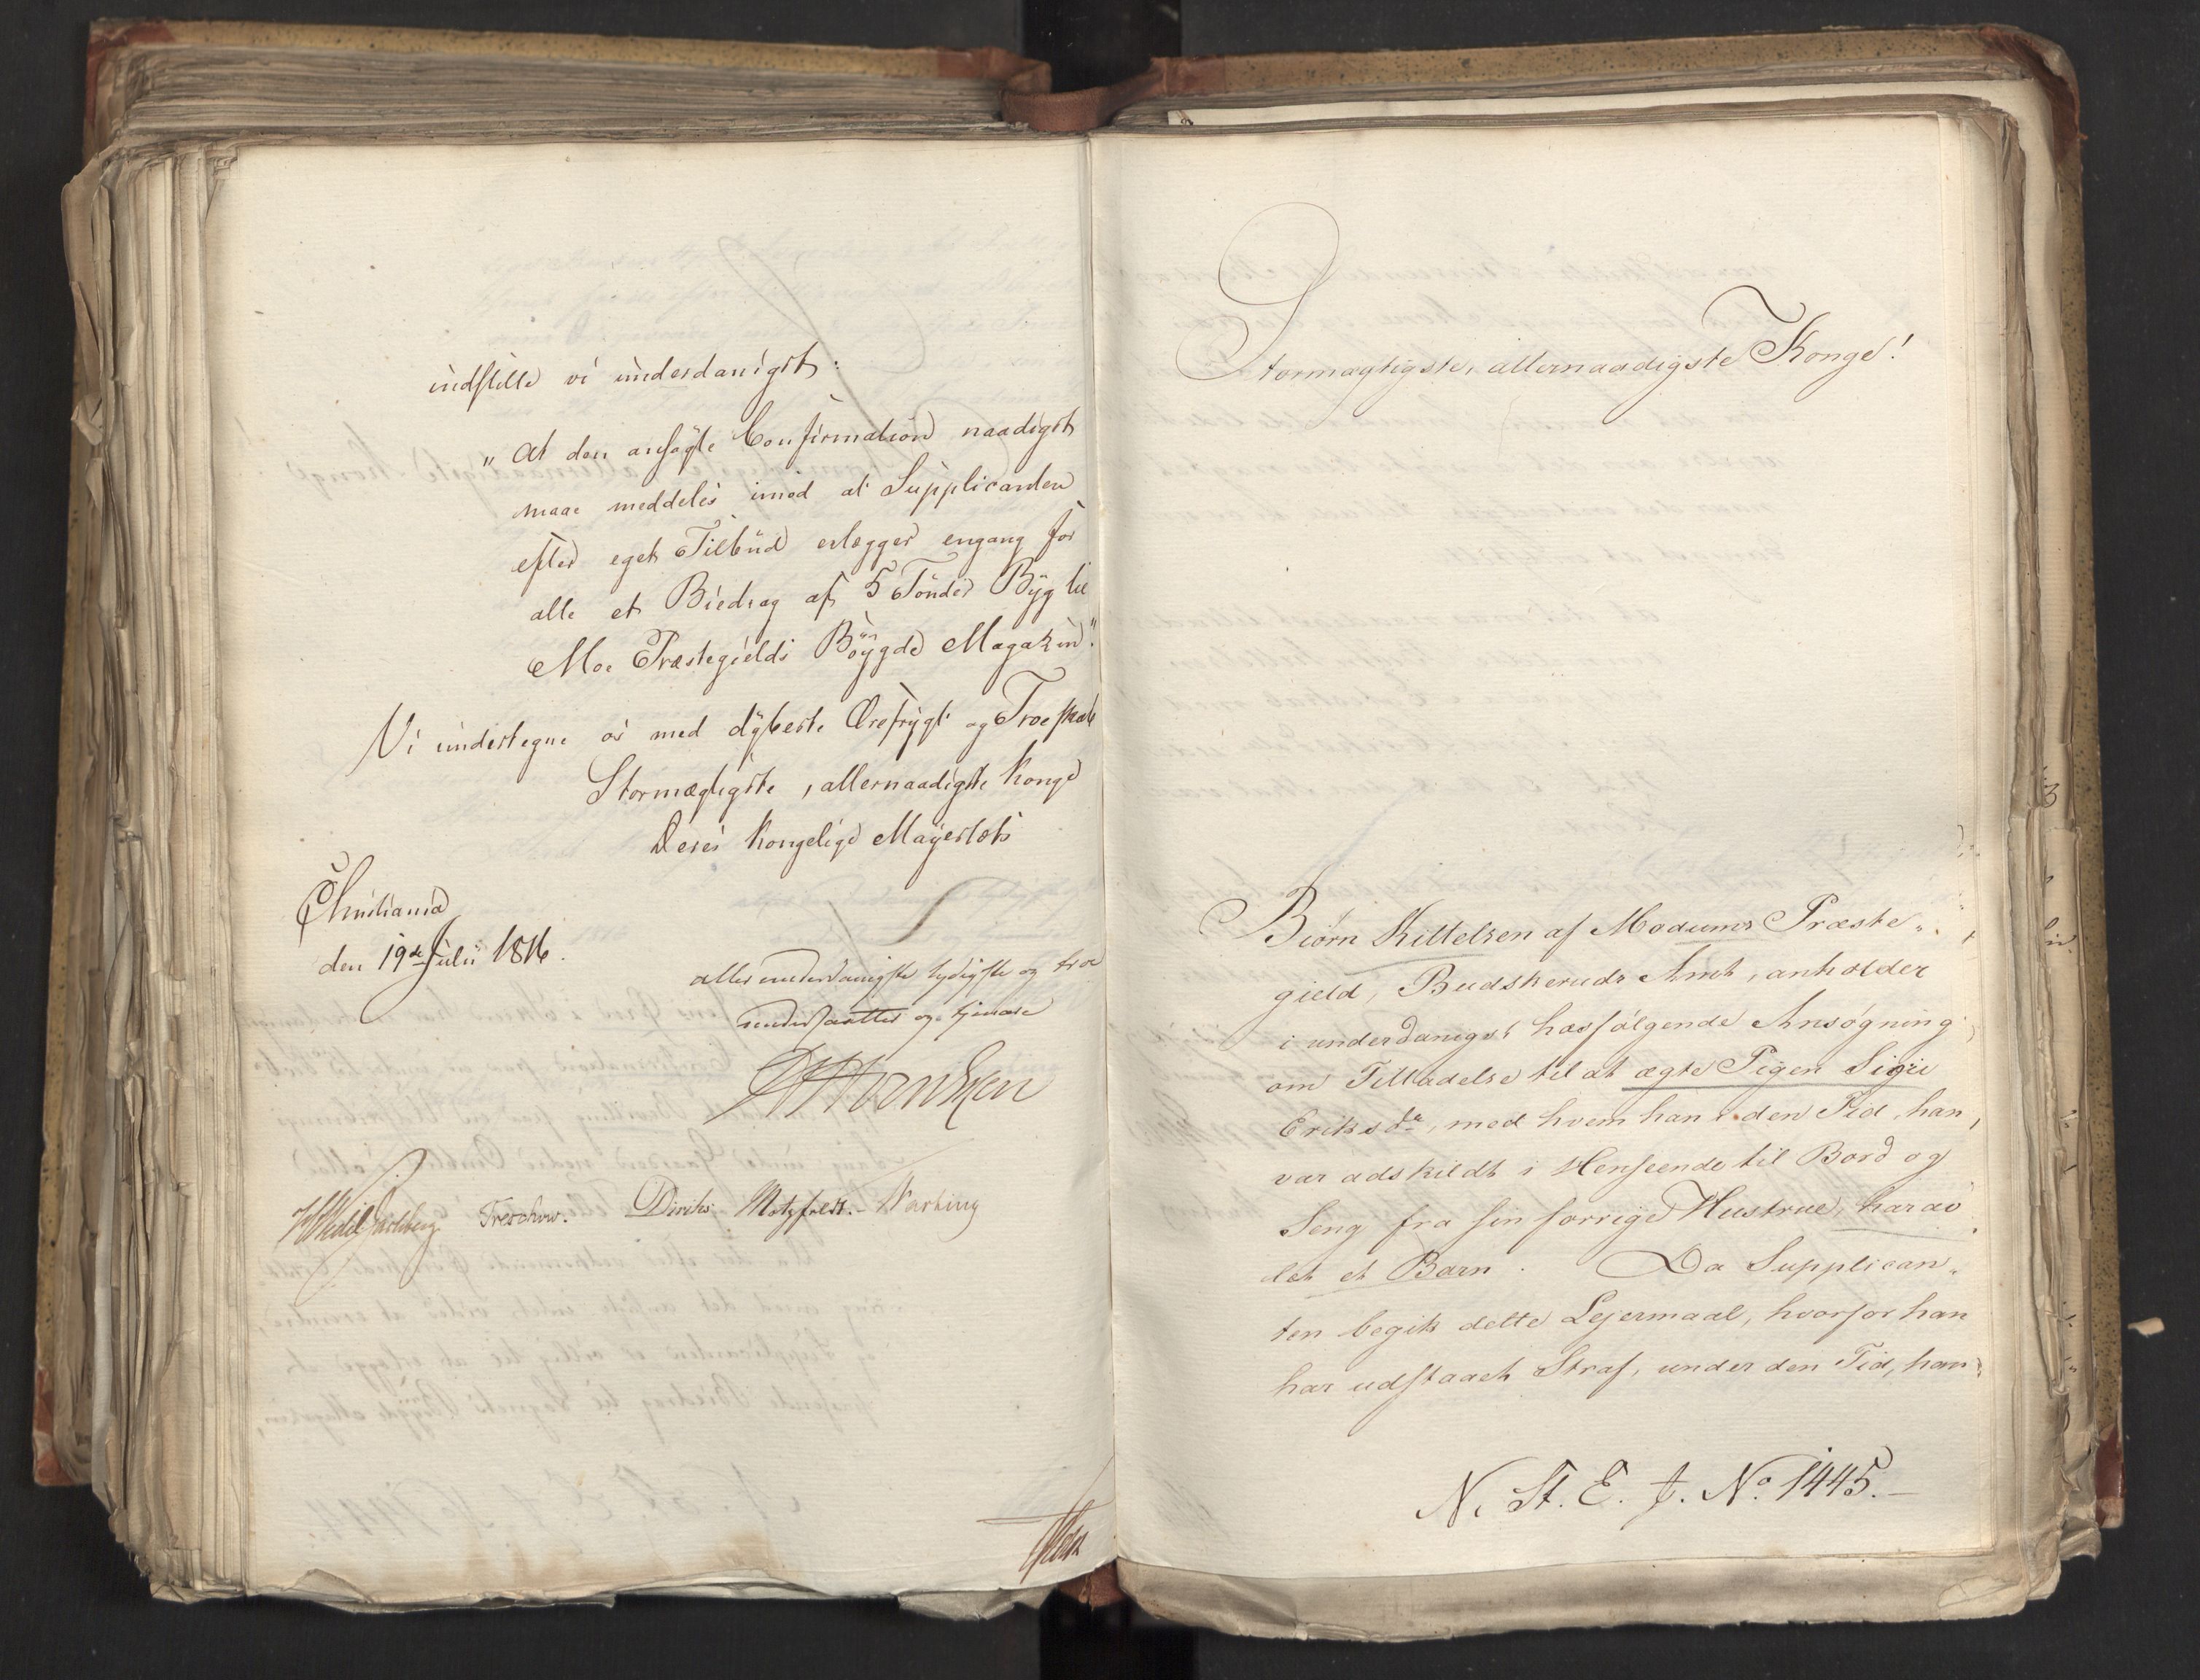 indstille vi underdanigst:
„At den ansøgte Confirmation naadigst
maae meddeles imod at Supplicanten
efter eget Tilbud erlægger engang for
alle et Biedrag af 5 Tønder Byg til
Moe Præstegields Bøygde Magazin."
Vi undertegne os med dybeste Ærefrygt og Troeskab
Stormægtigste, allernaadigste Konge
Deres Kongelige Mayestæts
Christiania
den 19de Julii 1816.
allerunderdanigste lydigste og troe
undersaatter og tjenere
Treschow. Diriks Motzfeldt.
Stormægtigste, allernaadigste Konge!
Biørn Kittelsen af Modums Præste„
gield, Budskeruds Amt, anholder
i underdanigst hosfølgende Ansøgning
om Tilladelse til at ægte Pigen Sigri
Eriksdr, med hvem han i den Tid, han
var adskildt i Henseende til Bord og
Seng fra sin forrige Hustrue, har av
let et Barn. Da Supplican„
ten begik dette Lejermaal, hvorfor han
har udstaaet Straf, under den Tid, han
N. St. E. J. No. 1445.